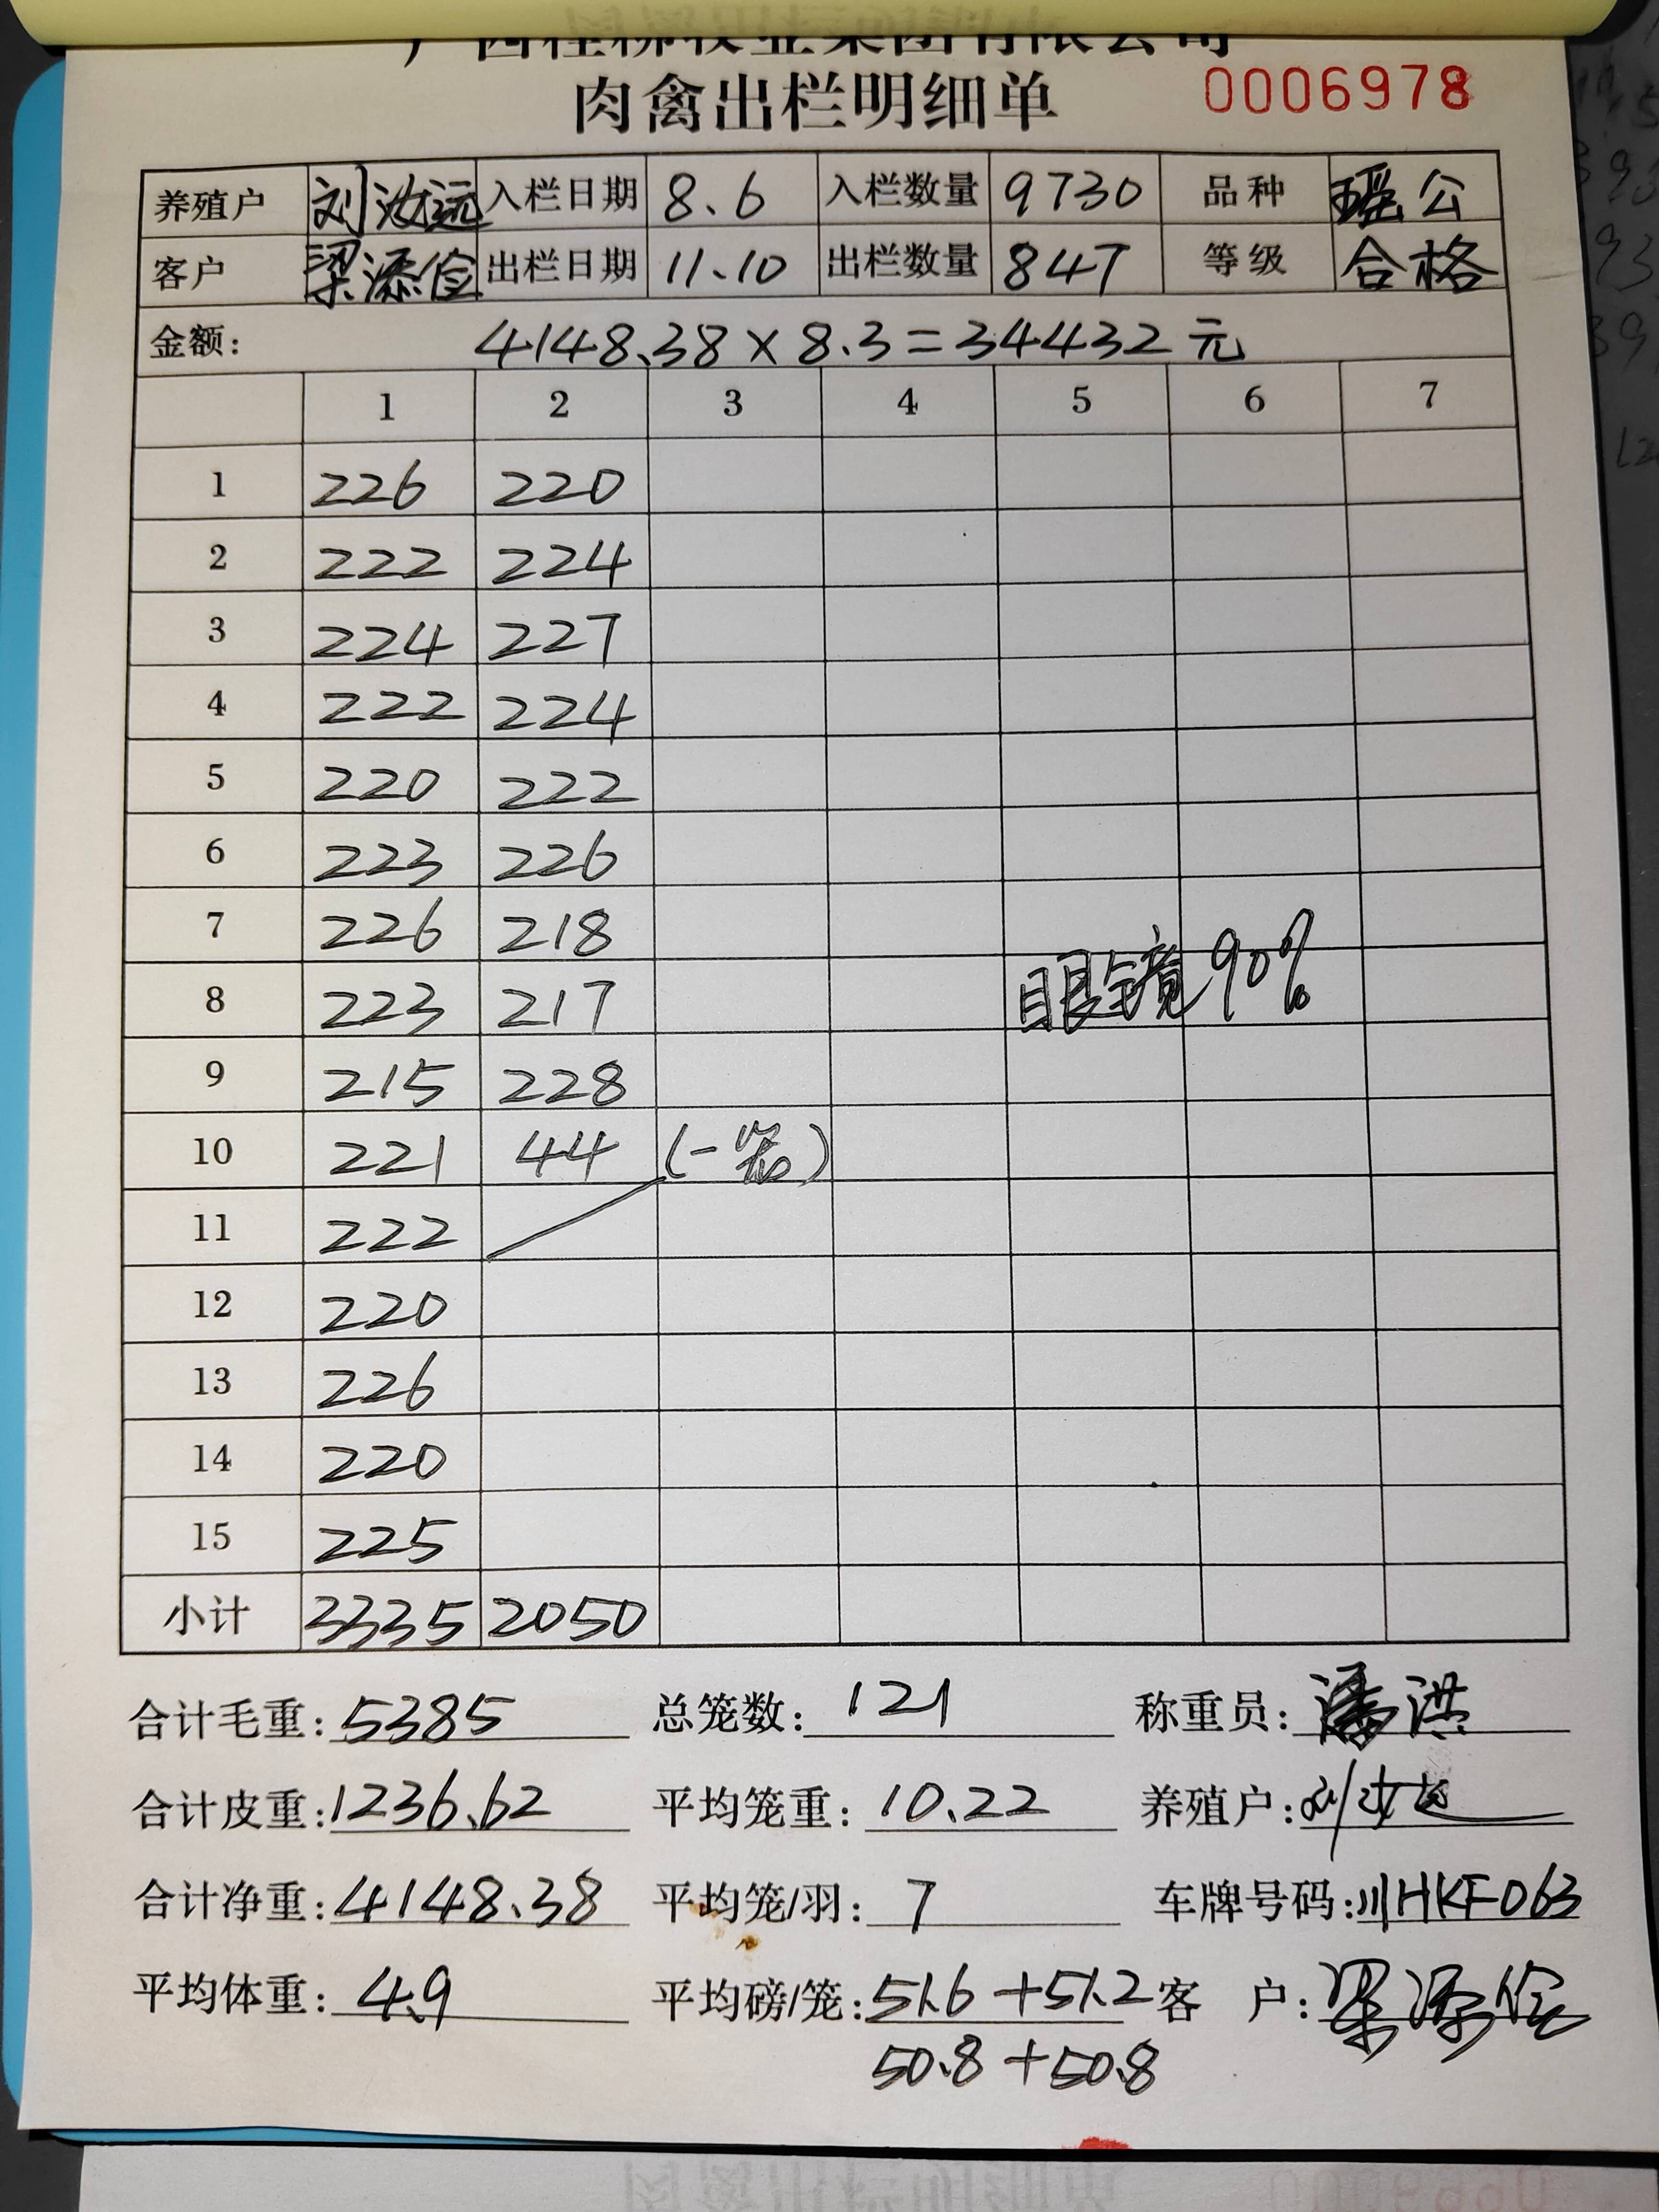 广西桂柳牧业集团有限公司
肉禽出栏明细单 0006978
养殖户 刘汝远 入栏日期 8.6 入栏数量 9730 品种 瑶公
客户 梁添俭 出栏日期 11.10 出栏数量 847 等级 合格
金额: 4148.38×8.3=34432元
1 2 3 4 5 6 7
1 226 220
2 222 224
3 224 227
4 222 224
5 220 222
6 223 226
7 226 218
8 223 217 眼镜90%
9 215 228
10 221 44 (一笼)
11 222
12 220
13 226
14 220
15 225
小计 3335 2050
合计毛重: 5385 总笼数: 121 称重员: 潘洪
合计皮重: 1236.62 平均笼重: 10.22 养殖户: 刘汝远
合计净重: 4148.38 平均笼/羽: 7 车牌号码: 川HKF063
平均体重: 4.9 平均磅/笼: 51.6+51.2 客 户: 梁添俭
50.8+50.8